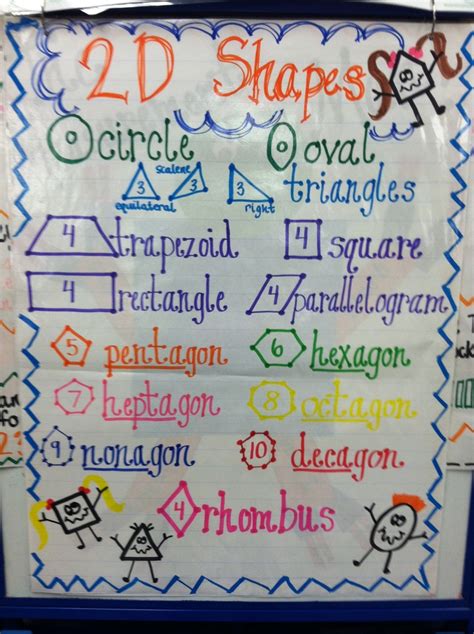 2D Shapes
0 circle 0 oval
3 equilateral 3 scalene 3 right triangles
4 trapezoid 4 square
4 rectangle 4 parallelogram
5 pentagon 6 hexagon
7 heptagon 8 octagon
9 nonagon 10 decagon
4 rhombus